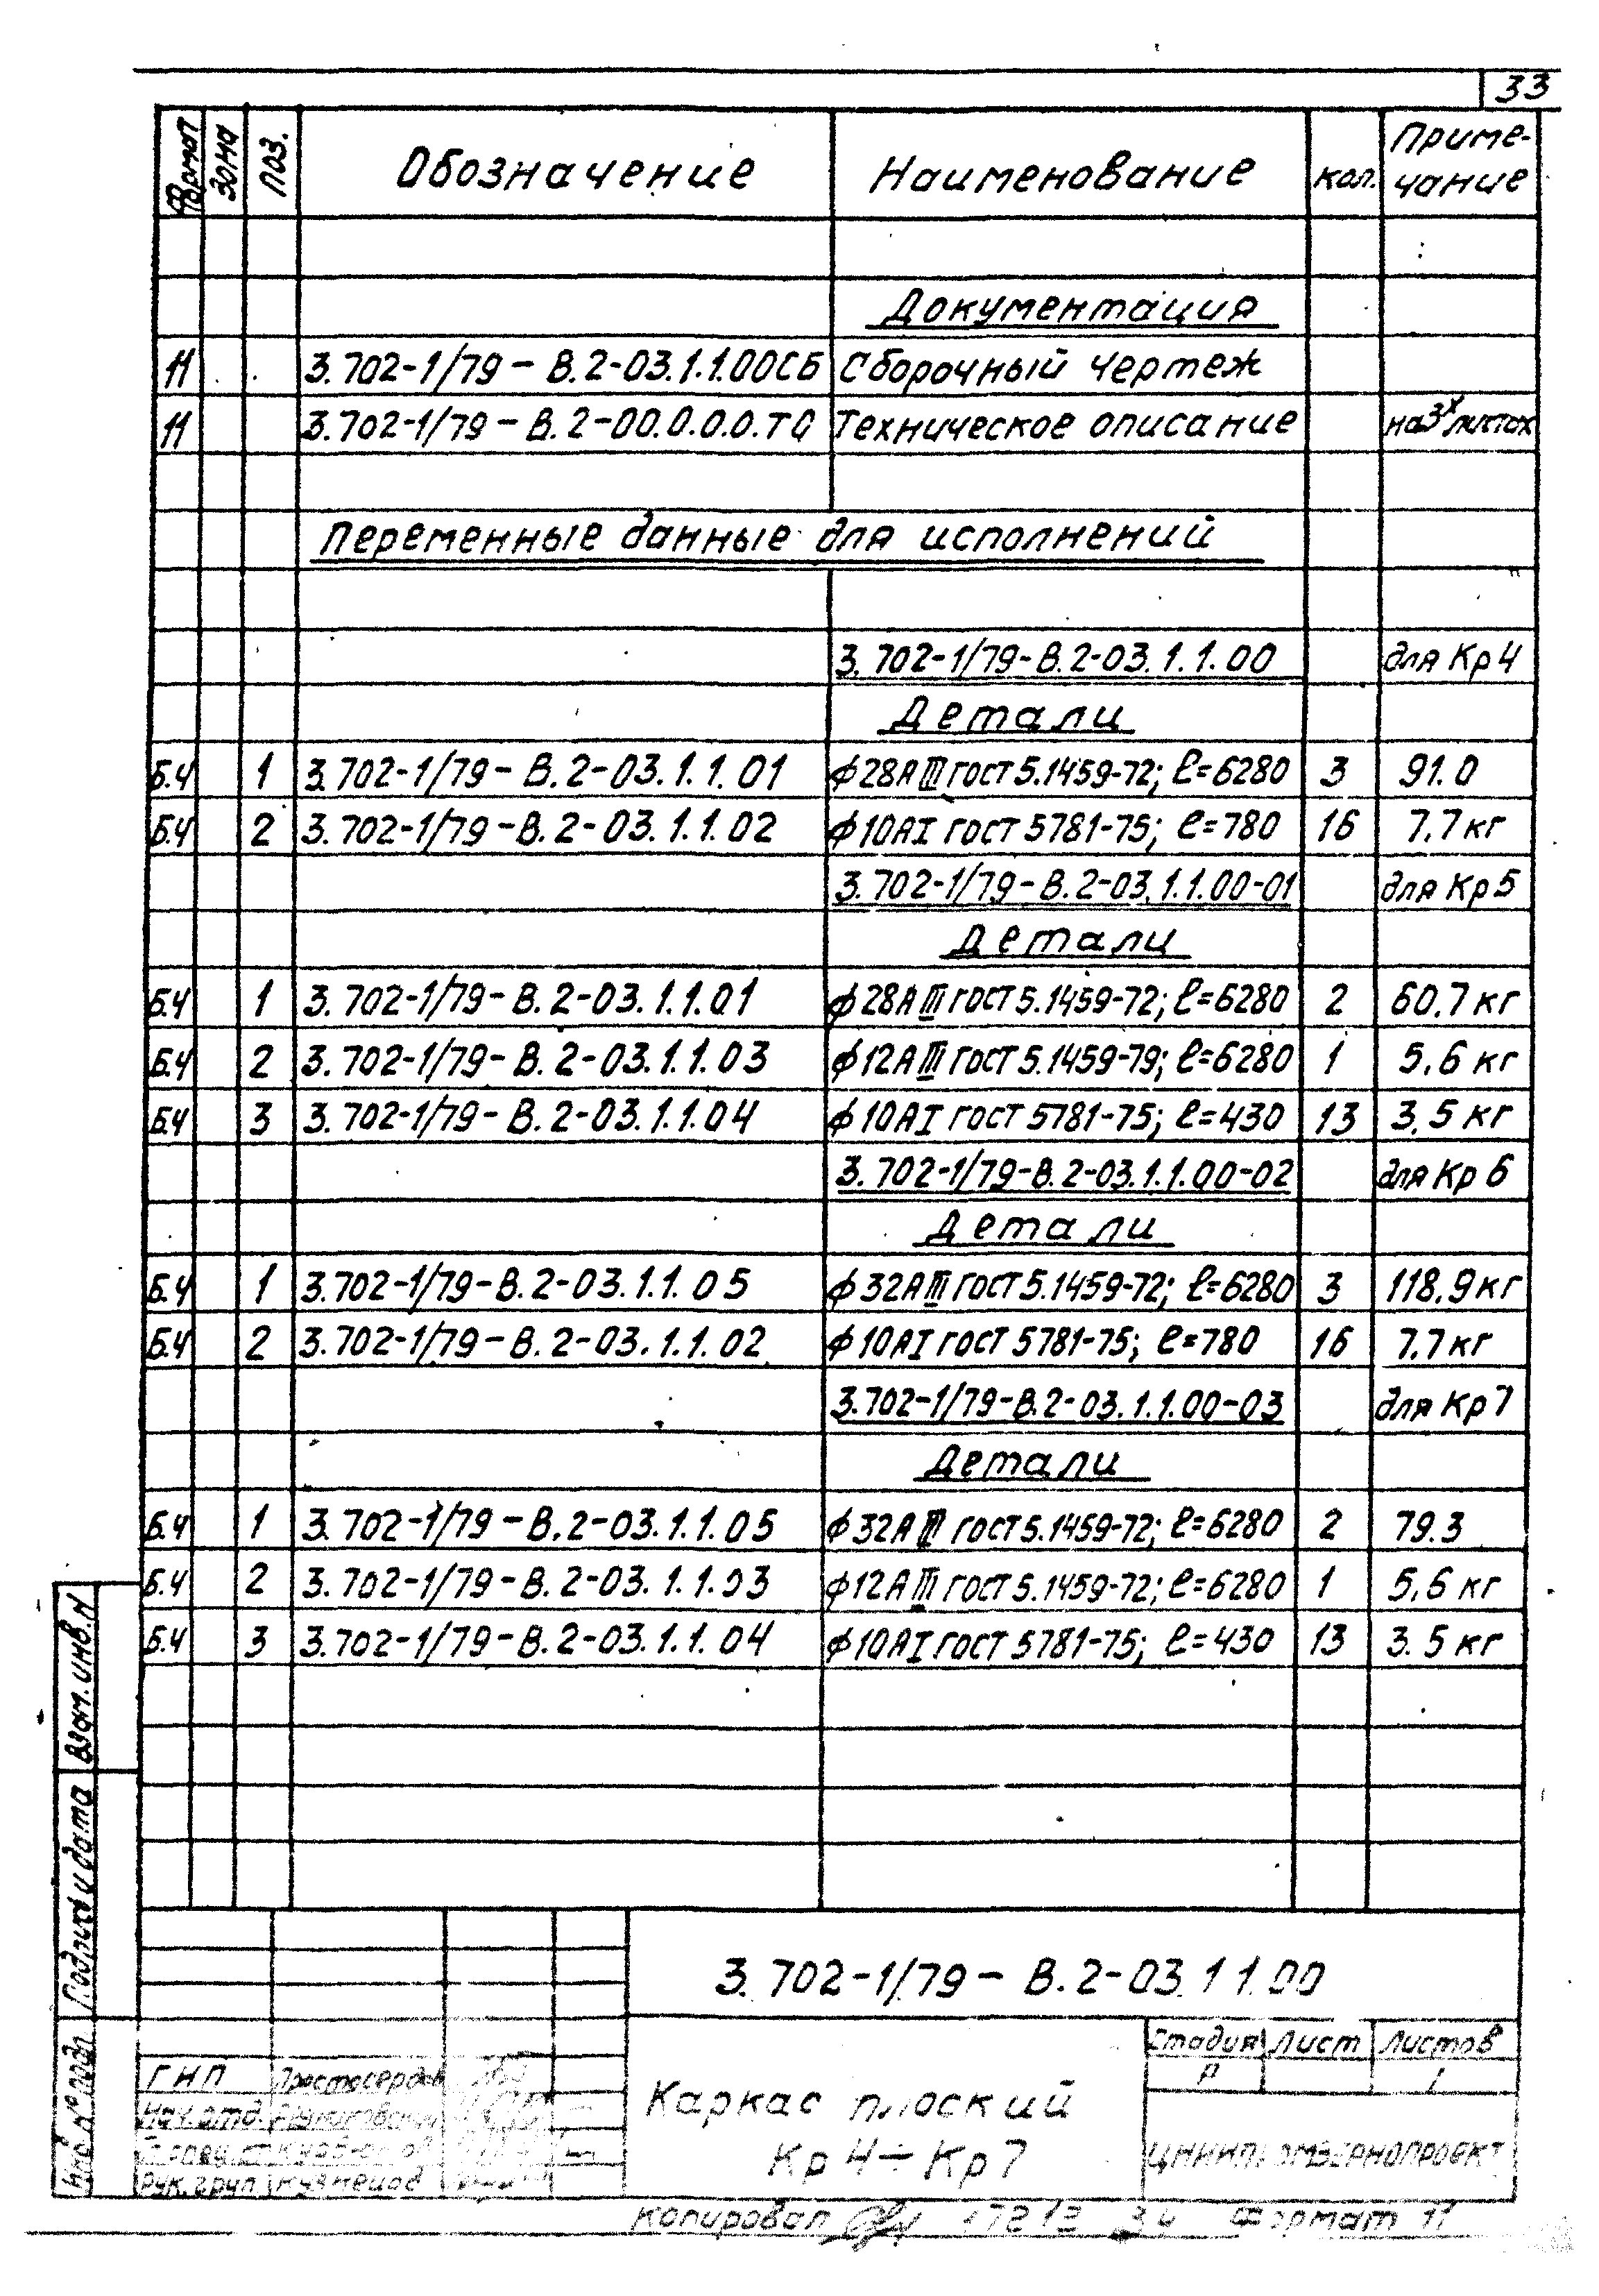 33
Формат Зона Поз. Обозначение Наименование кол. Приме-
чание
Документация
11 3.702-1/79 - В.2-03.1.1.00СБ Сборочный чертеж
11 3.702-1/79 - В.2-00.0.0.0.ТО Техническое описание на 3х листах
Переменные данные для исполнений
3.702-1/79-В.2-03.1.1.00 для Кр4
Детали
Б.Ч 1 3.702-1/79-В.2-03.1.1.01 ф28АIII ГОСТ 5.1459-72; ℓ=6280 3 91.0
Б.Ч 2 3.702-1/79-В.2-03.1.1.02 ф10АI ГОСТ 5781-75; ℓ=780 16 7,7 кг
3.702-1/79-В.2-03.1.1.00-01 для Кр5
Детали
Б.Ч 1 3.702-1/79-В.2-03.1.1.01 ф28АIII ГОСТ 5.1459-72; ℓ=6280 2 60,7 кг
Б.Ч 2 3.702-1/79-В.2-03.1.1.03 ф12АIII ГОСТ 5.1459-79; ℓ=6280 1 5,6 кг
Б.Ч 3 3.702-1/79-В.2-03.1.1.04 ф10АI ГОСТ 5781-75; ℓ=430 13 3,5 кг
3.702-1/79-В.2-03.1.1.00-02 для Кр6
Детали
Б.Ч 1 3.702-1/79-В.2-03.1.1.05 ф32АIII ГОСТ 5.1459-72; ℓ=6280 3 118,9 кг
Б.Ч 2 3.702-1/79-В.2-03.1.1.02 ф10АI ГОСТ 5781-75; ℓ=780 16 7,7 кг
3.702-1/79-В.2-03.1.1.00-03 для Кр7
Детали
Б.Ч 1 3.702-1/79-В.2-03.1.1.05 ф32АIII ГОСТ 5.1459-72; ℓ=6280 2 79.3
Б.Ч 2 3.702-1/79-В.2-03.1.1.03 ф12АIII ГОСТ 5.1459-72; ℓ=6280 1 5,6 кг
Б.Ч 3 3.702-1/79-В.2-03.1.1.04 ф10АI ГОСТ 5781-75; ℓ=430 13 3.5 кг
Взам.инв.N
Подпись и дата
Инв.N°подл
3.702-1/79 - В.2-03.1 1.00
Стадия Лист Листов
Р 1
ГИП Простосердов
Нач.отд.
Рук.груп Кузнецов
Каркас плоский
Кр4÷Кр7
ЦНИИПРОМЗЕРНОПРОЕКТ
Копировал 34 Формат 11